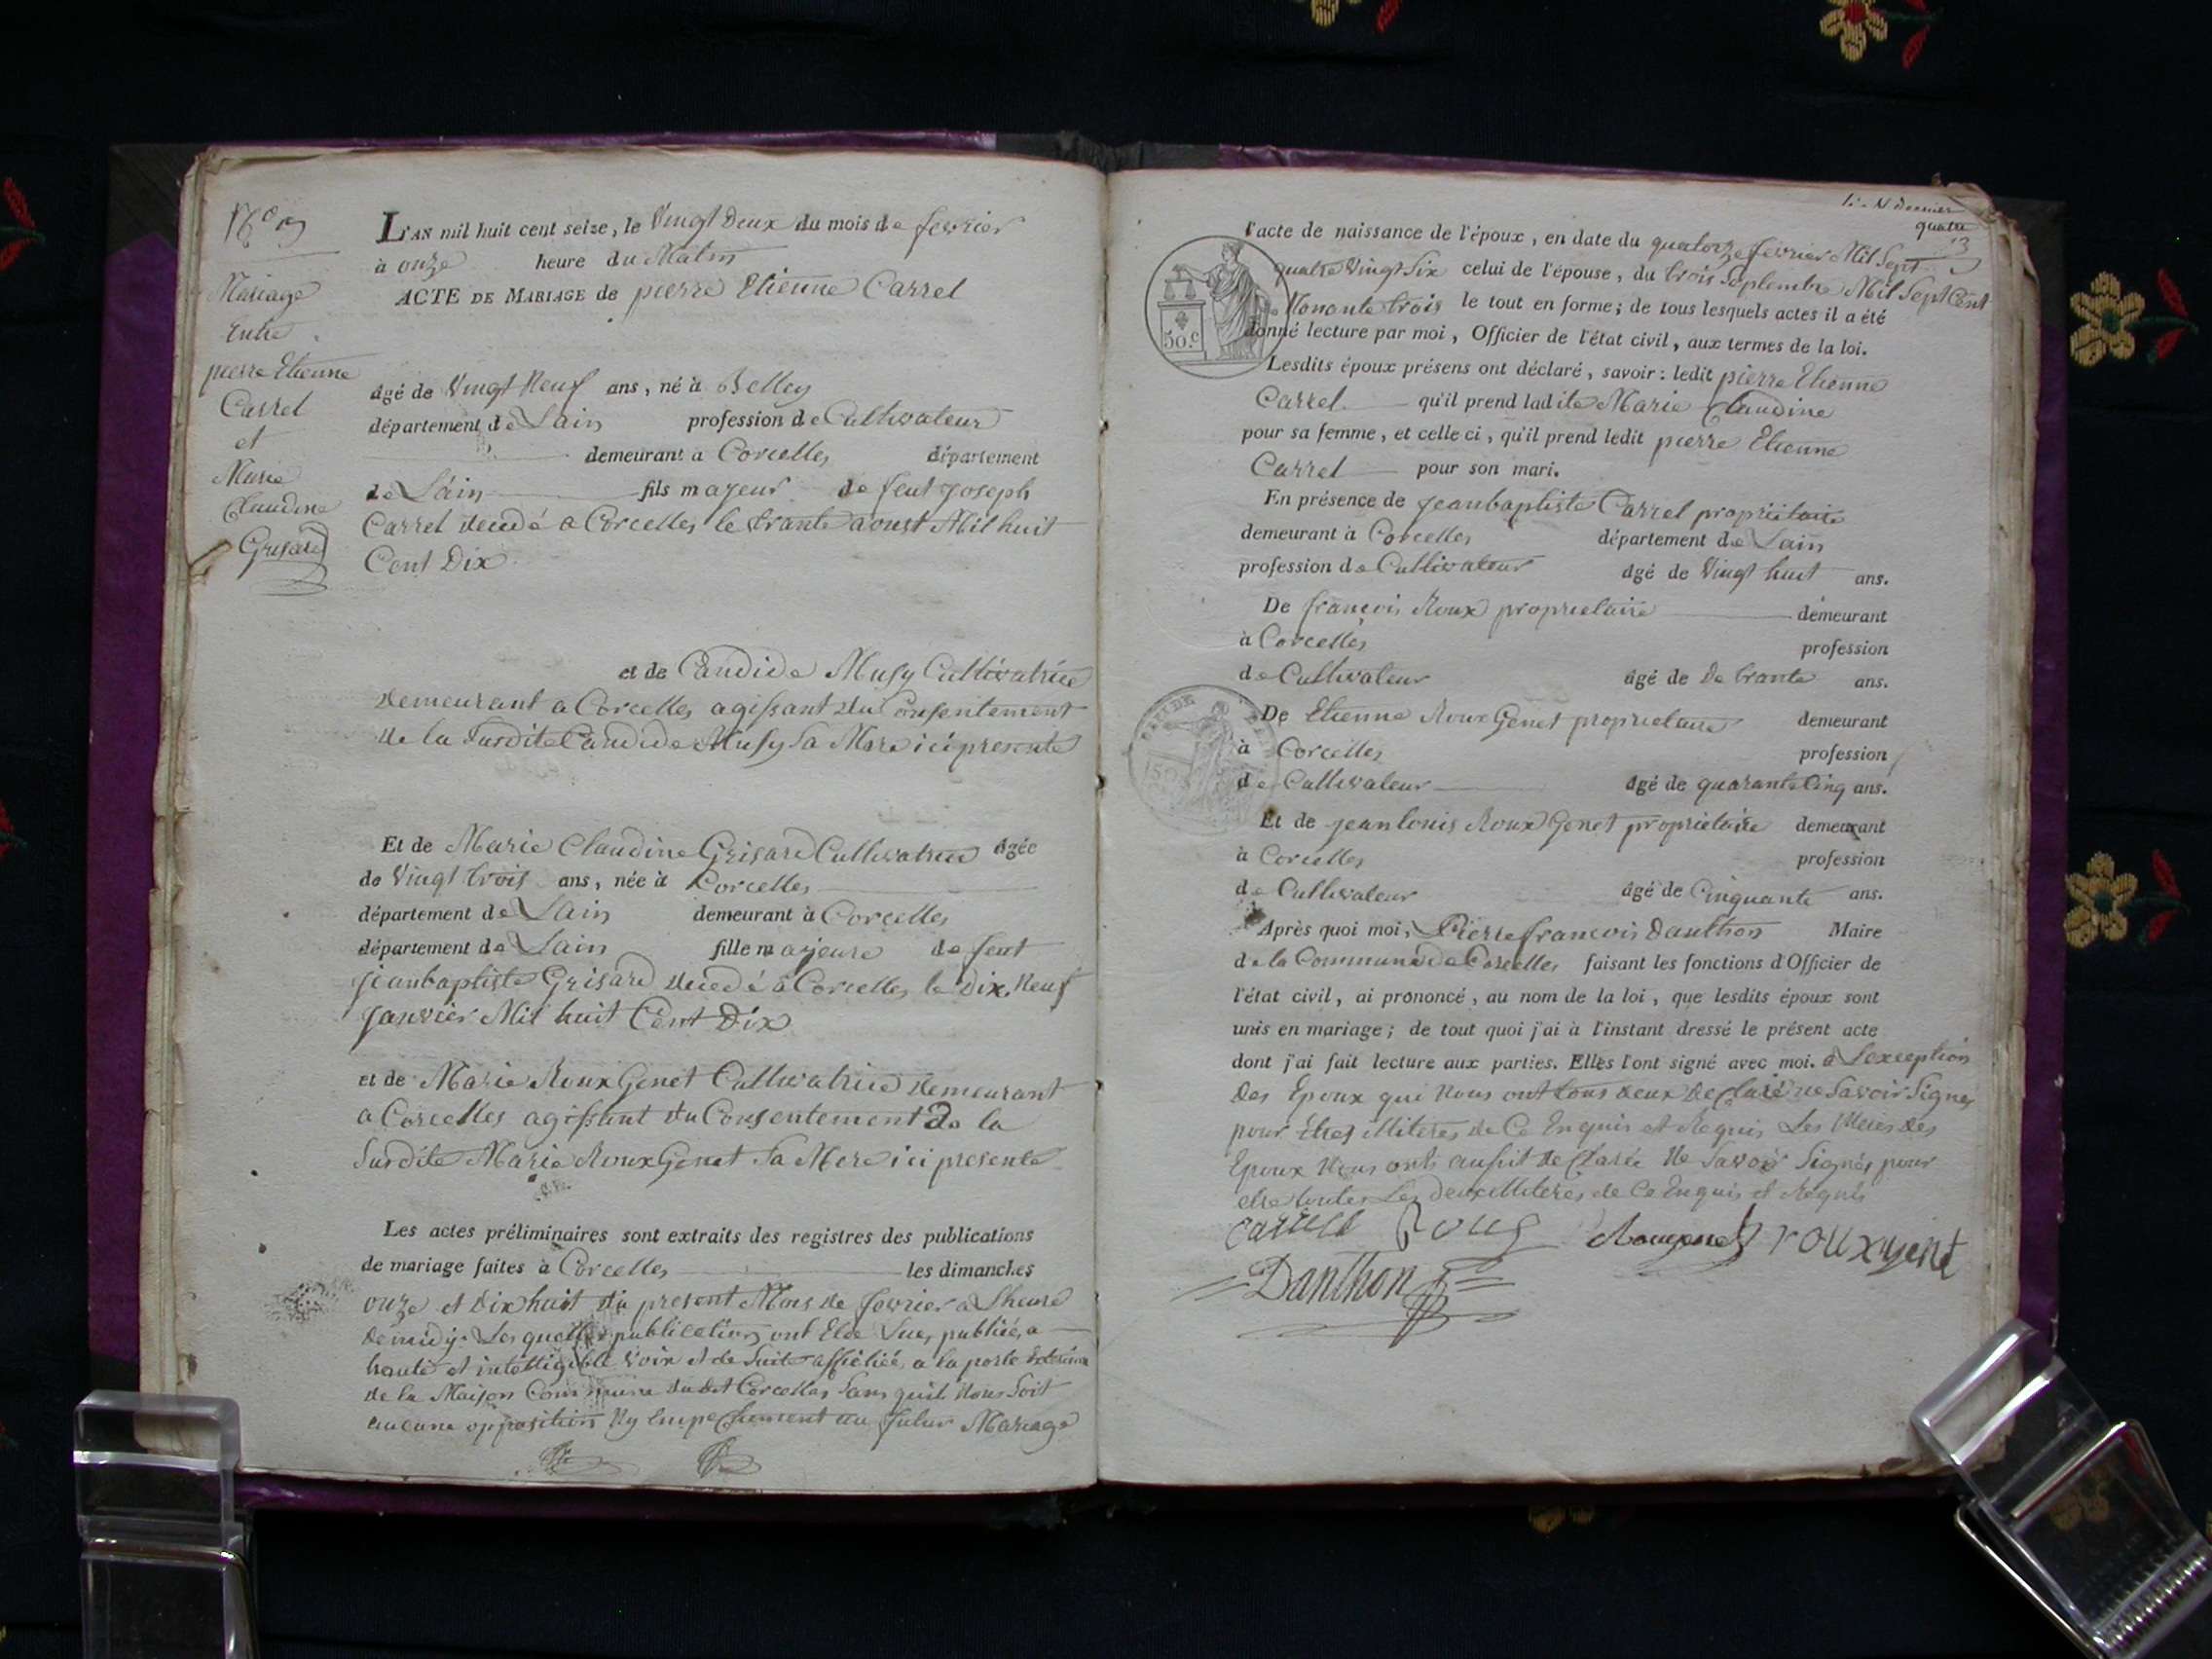 Mariage
Entre
pierre Etienne
Carrel
et
Marie
Claudine
Grisard
L'AN mil huit cent seize, le Vingt Deux du mois de fevrier
à onze heure du Matin
ACTE DE MARIAGE de pierre Etienne Carrel
âgé de Vingt Neuf ans, né à Belley
département de Lain profession de Cultivateur
demeurant à Corcelles département
de Láin fils majeur de feut Joseph
Carrel decedé a Corcelles le trante aoust Mil huit
Cent Dix
et de Candide Musy Cultivatrice
demeurant a Corcelles agissant du Consentement
de la Susdite Candide Musy Sa Mere ici presente
Et de Marie Claudine Grisard Cultivatrice âgée
de Vingt trois ans, née à Corcelles
département de Lain demeurant à Corcelles
département de Lain fille majeure de feut
jeanbaptiste Grisard decedé a Corcelles le Dix Neuf
janvier Mil huit Cent Dix
et de Marie Roux Genet Cultivatrice demeurant
a Corcelles agissant du Consentement De la
Susdite Marie Roux Genet Sa Mere ici presente
Les actes préliminaires sont extraits des registres des publications
de mariage faites à Corcelles les dimanches
onze et Dix huit du present Mois de fevrier a Lheure
de midy Les quelles publications ont Eté Lues, publiée, a
haute et intelligible voix et de Suite affichée a la porte Exterieure
de la Maison Commune dudit Corcelles Sans quil Nous Soit
aucune opposition Ny Empechement au futur Mariage
quatre
3
l'acte de naissance de l'époux, en date du quatorze fevrier Mil Sept
quatre Vingt Six celui de l'épouse, du trois Septembre Mil Sept Cent
Nonante trois le tout en forme; de tous lesquels actes il a été
donné lecture par moi, Officier de l'état civil, aux termes de la loi.
50.c
Lesdits époux présens ont déclaré, savoir: ledit pierre Etienne
Carrel qu'il prend ladite Marie Claudine
pour sa femme, et celle ci, qu'il prend ledit pierre Etienne
Carrel pour son mari.
En présence de jeanbaptiste Carrel propriétaire
demeurant à Corcelles département de Lain
profession de Cultivateur âgé de Vingt huit ans.
De françois Roux proprietaire demeurant
à Corcelles profession
de Cultivateur âgé de De trante ans.
De Etienne Roux Genet proprietaire demeurant
à Corcelles profession
de Cultivateur âgé de quarante Cinq ans.
Et de jean louis Roux Genet proprietaire demeurant
à Corcelles profession
de Cultivateur âgé de Cinquante ans.
Après quoi moi, Pierre françois Danthon Maire
de la Commune de Corcelles faisant les fonctions d'Officier de
l'état civil, ai prononcé, au nom de la loi, que lesdits époux sont
unis en mariage; de tout quoi j'ai à l'instant dressé le présent acte
dont j'ai fait lecture aux parties. Elles l'ont signé avec moi. a Lexception
des Epoux qui Nous ont tous deux declaré ne Savoir Signer
pour Etres illiteres de Ce Enquis et Requis Les Meres des
Epoux Nous ont aussit declarée Ne Savoir Signer pour
etre toutes Les deux illiteres de Ce Enquis et Requis
Carrel Roux Rouxgenet rouxgent
Danthon